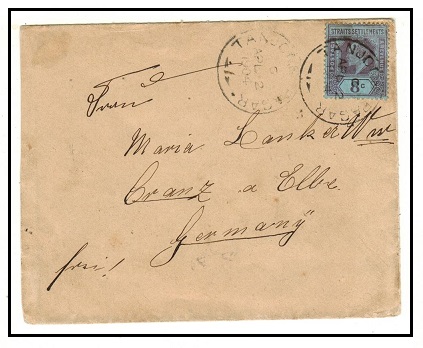 STRAITS SETTLEMENTS
8c
TANJO
PAGAR
AP 2
TANJO
GAR
Frau
Maria Lanker Ww
Cranz a Elbe
Germany
frei!